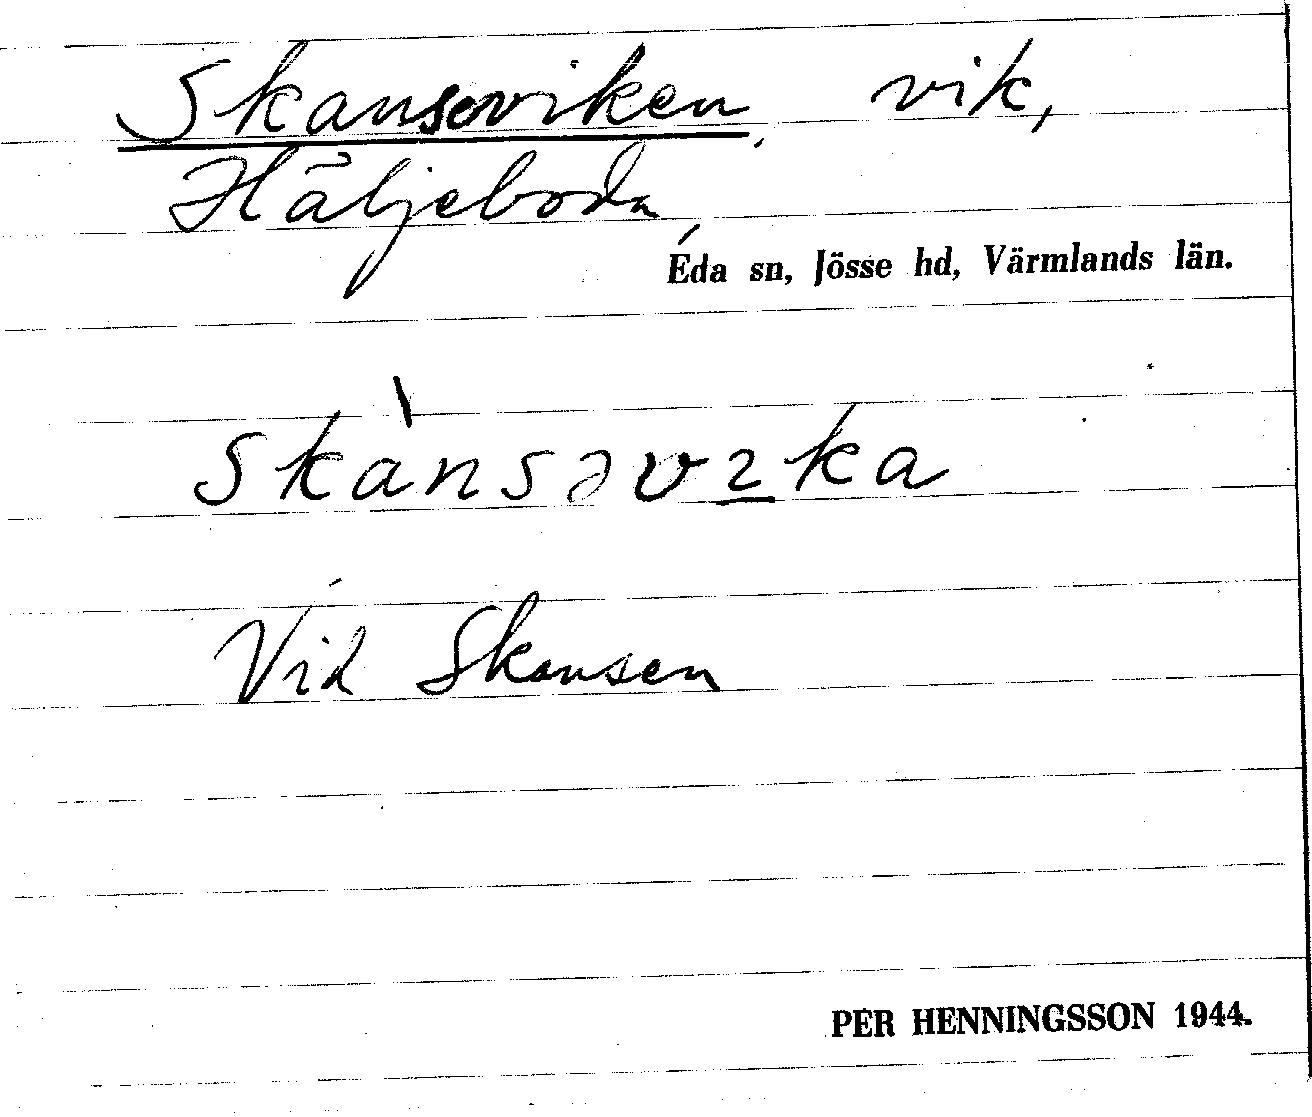 Skanseviken, vik,
Häljeboda
Eda sn, Jösse hd, Värmlands län.
skànsəvɪka
Vid Skansen
PER HENNINGSSON 1944.